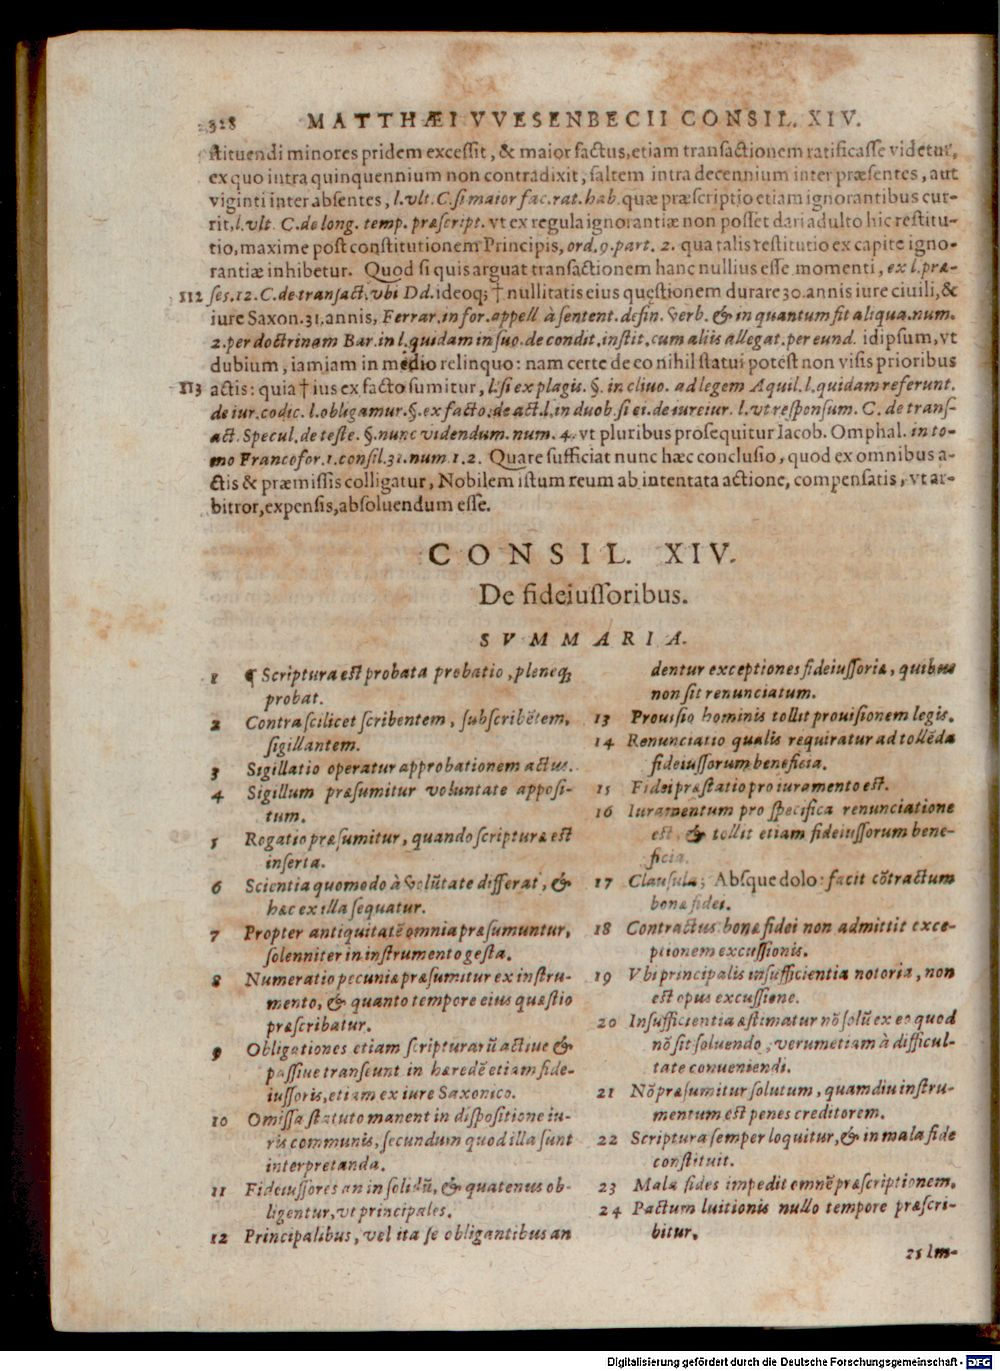 328 MATTHÆI VVESENBECII CONSIL. XIV.
ſtituendi minores pridem exceſſit, & maior factus, etiam transactionem ratificaſſe videtur,
ex quo intra quinquennium non contradixit, ſaltem intra decennium inter præſentes, aut
viginti inter abſentes, l.vlt. C. ſi maior fac. rat. hab. quæ præſcriptio etiam ignorantibus cur-
rit, l.vlt. C. de long. temp. præſcript. vt ex regula ignorantiæ non poſſet dari adulto hic reſtitu-
tio, maxime poſt conſtitutionem Principis, ord. 9. part. 2. qua talis reſtitutio ex capite igno-
rantiæ inhibetur. Quod ſi quis arguat transactionem hanc nullius eſſe momenti, ex l. præ-
112 ſes. 12. C. de transact. vbi Dd. ideoq; † nullitatis eius quęſtionem durare 30. annis iure ciuili, &
iure Saxon. 31. annis, Ferrar. in for. appell. à ſentent. defin. verb. & in quantum fit aliqua. num.
2. per doctrinam Bar. in l. quidam in ſuo. de condit. inſtit. cum aliis allegat. per eund. id ipſum, vt
dubium, iamiam in medio relinquo: nam certe de eo nihil ſtatui poteſt non viſis prioribus
113 actis: quia † ius ex facto ſumitur, l. ſi ex plagis. §. in cliuo. ad legem Aquil. l. quidam referunt.
de iur. codic. l. obligamur. §. ex facto. de act. l. in duob. ſi ei. de iureiur. l. vt reſponſum. C. de trans-
act. Specul. de teſte. §. nunc videndum. num. 4. vt pluribus proſequitur Iacob. Omphal. in to-
mo Francofor. 1. conſil. 31. num. 1. 2. Quare ſufficiat nunc hæc concluſio, quod ex omnibus a-
ctis & præmiſſis colligatur, Nobilem iſtum reum ab intentata actione, compenſatis, vt ar-
bitror, expenſis, abſoluendum eſſe.
CONSIL. XIV.
De fideiuſſoribus.
SVMMARIA.
1 ¶ Scriptura eſt probata probatio, pleneq;
probat.
2 Contra ſcilicet ſcribentem, ſubſcribẽtem,
ſigillantem.
3 Sigillatio operatur approbationem actus.
4 Sigillum præſumitur voluntate appoſi-
tum.
5 Rogatio præſumitur, quando ſcripturæ eſt
inſerta.
6 Scientia quomodo à volũtate differat, &
hæc ex illa ſequatur.
7 Propter antiquitatẽ omnia præſumuntur,
ſolenniter in inſtrumento geſta.
8 Numeratio pecuniæ præſumitur ex inſtru-
mento, & quanto tempore eius quæſtio
præſcribatur.
9 Obligationes etiam ſcripturarũ actiue &
paſſiue tranſeunt in hæredẽ etiam fide-
iuſſoris, etiam ex iure Saxonico.
10 Omiſſa ſtatuto manent in diſpoſitione iu-
ris communis, ſecundum quod illa ſunt
interpretanda.
11 Fideiuſſores an in ſolidũ, & quatenus ob-
ligentur, vt principales.
12 Principalibus, vel ita ſe obligantibus an
dentur exceptiones fideiuſſoriæ, quibus
non ſit renunciatum.
13 Prouiſio hominis tollit prouiſionem legis.
14 Renunciatio qualis requiratur ad tollẽda
fideiuſſorum beneficia.
15 Fidei præſtatio pro iuramento eſt.
16 Iuramentum pro ſpecifica renunciatione
eſt, & tollit etiam fideiuſſorum bene-
ficia.
17 Clauſula; Abſque dolo: facit cõtractum
bonæ fidei.
18 Contractus bonæ fidei non admittit exce-
ptionem excuſſionis.
19 Vbi principalis inſufficientia notoria, non
eſt opus excuſſione.
20 Inſufficientia æſtimatur nõ ſolũ ex eo quod
nõ ſit ſoluendo, verumetiam à difficul-
tate conueniendi.
21 Nõ præſumitur ſolutum, quamdiu inſtru-
mentum eſt penes creditorem.
22 Scriptura ſemper loquitur, & in mala fide
conſtituit.
23 Mala fides impedit omnẽ præſcriptionem.
24 Pactum luitionis nullo tempore præſcri-
bitur.
25 Im-
Digitalisierung gefördert durch die Deutsche Forschungsgemeinschaft - DFG